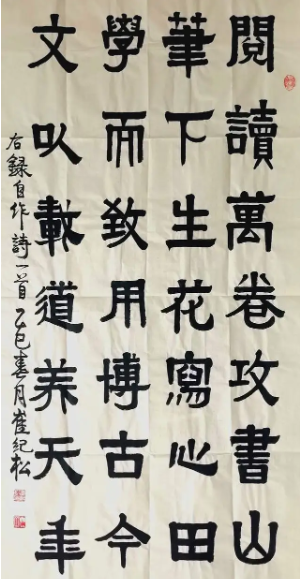 閱讀萬卷攻書山
筆下生花寫心田
學而致用博古今
文以載道养天年
右録自作詩一首乙巳春月崔纪松